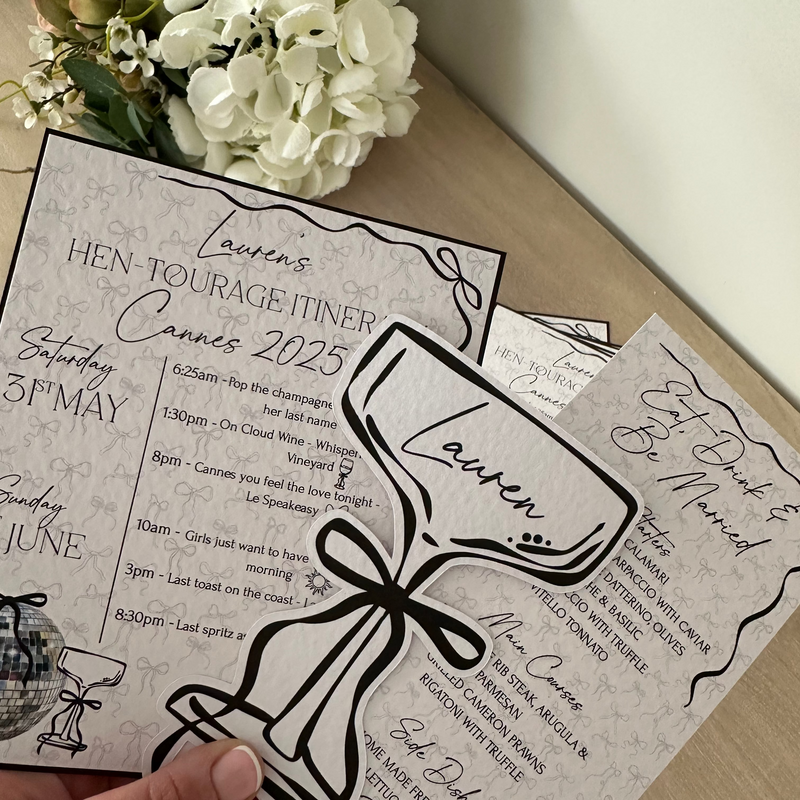 Lauren's
HEN-TOURAGE
Cannes 2025
Saturday
31ST MAY
6:25am - Pop the champagne
her last name
1:30pm - On Cloud Wine -
Vineyard
8pm - Cannes you feel the love tonight -
Le Speakeasy
Sunday
JUNE
10am - Girls just want to have
morning
3pm - Last toast on the coast -
8:30pm - Last spritz
Lauren
HEN-TOURAGE
Cannes
Eat, Drink &
Be Married
Starters
CALAMARI
CARPACCIO WITH CAVIAR
DATTERINO, OLIVES
& BASILIC
WITH TRUFFLE
VITELLO TONNATO
Main Courses
RIB STEAK, ARUGULA &
PARMESAN
CAMERON PRAWNS
RIGATONI WITH TRUFFLE
Side
MADE